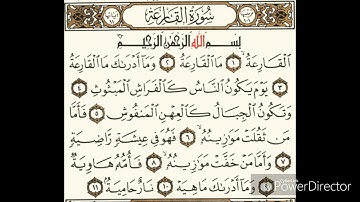 سُورَةُ القَارِعَةِ
بِسْمِ اللَّهِ الرَّحْمَٰنِ الرَّحِيمِ
الْقَارِعَةُ ١ مَا الْقَارِعَةُ ٢ وَمَا أَدْرَىٰكَ مَا الْقَارِعَةُ
٣ يَوْمَ يَكُونُ النَّاسُ كَالْفَرَاشِ الْمَبْثُوثِ ٤
وَتَكُونُ الْجِبَالُ كَالْعِهْنِ الْمَنفُوشِ ٥ فَأَمَّا
مَن ثَقُلَتْ مَوَٰزِينُهُ ٦ فَهُوَ فِي عِيشَةٍ رَّاضِيَةٍ
٧ وَأَمَّا مَنْ خَفَّتْ مَوَٰزِينُهُ ٨ فَأُمُّهُ هَاوِيَةٌ
٩ وَمَا أَدْرَىٰكَ مَا هِيَهْ ١٠ نَارٌ حَامِيَةٌ ١١
PowerDirector